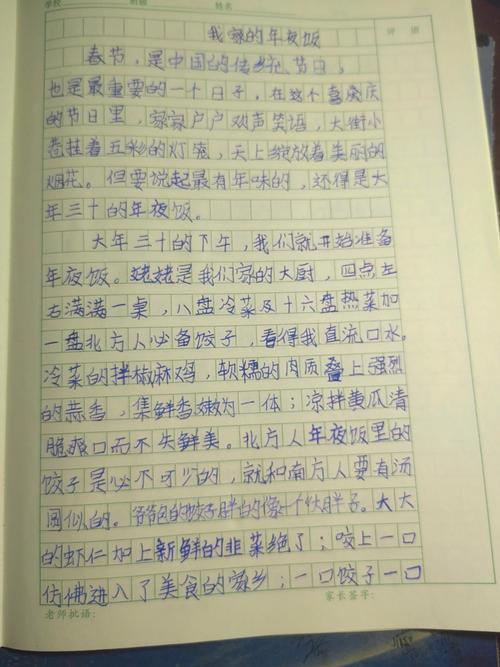 学校 班级 姓名
我家的年夜饭 评语
春节,是中国的传统节日,
也是最重要的一个日子,在这个喜庆
的节日里,家家户户欢声笑语,大街小
巷挂着五彩的灯笼,天上绽放着美丽的
烟花。但要说起最有年味的,还得是大
年三十的年夜饭。
大年三十的下午,我们就开始准备
年夜饭。姥姥是我们家的大厨,四点左
右满满一桌,八盘冷菜及十六盘热菜加
一盘北方人必备饺子,看得我直流口水。
冷菜的拌椒麻鸡,软糯的肉质叠上强烈
的蒜香,集鲜香嫩为一体;凉拌黄瓜清
脆爽口而不失鲜美。北方人年夜饭里的
饺子是必不可少的,就和南方人要有汤
圆似的。爷爷包的饺子胖的像一个小胖子。大大
的虾仁加上新鲜的韭菜绝了;咬上一口
仿佛进入了美食的家乡;一口饺子一口
老师批语: 家长签字: